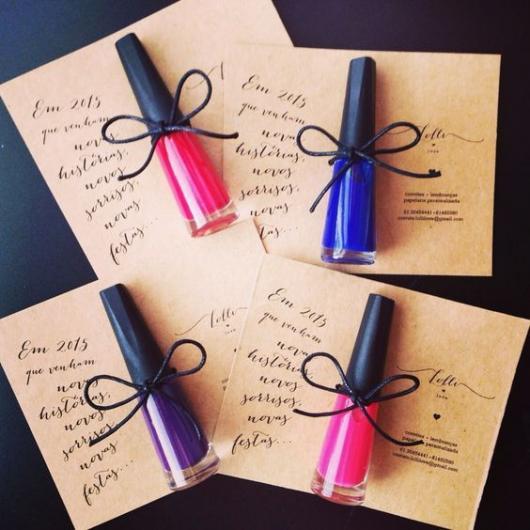 Em 2015
que venham
novas
histórias,
novos
sorrisos,
novas
festas...
Em 2015
que venham
novas
histórias,
novos
sorrisos,
novas
festas...
Lolli
convites - lembranças
papelaria personalizada
Em 2015
que venham
novas
histórias,
novos
sorrisos,
novas
festas...
Em 2015
que venham
novas
histórias,
novos
sorrisos,
novas
festas...
Lolli
convites - lembranças
papelaria personalizada